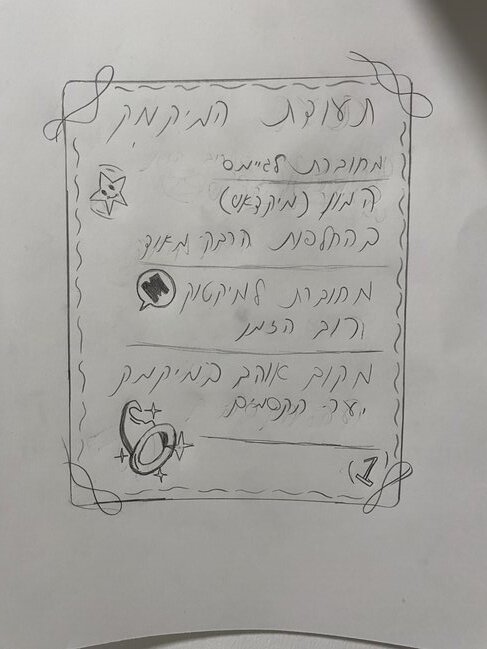 תעודת המיקמק
מחוברת לגיימס
המון (מיקדאס)
בהחלפות הרבה מאוד
מחוברת למיקטוק
רוב הזמן
מקום אוהב במיקמק
יער הקסמים
(1)